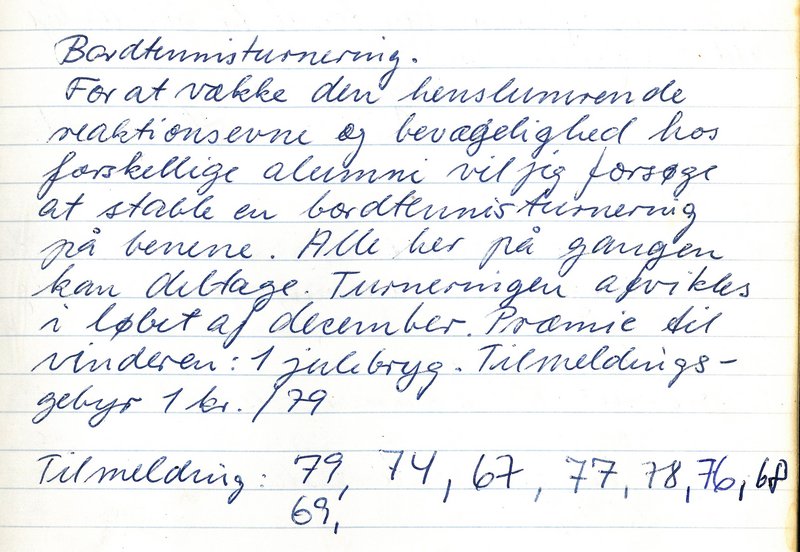 Bordtennisturnering.
For at vække den henslumrende
reaktionsevne og bevægelighed hos
forskellige alumni vil jeg forsøge
at stable en bordtennisturnering
på benene. Alle her på gangen
kan deltage. Turneringen afvikles
i løbet af december. Præmie til
vinderen: 1 julebryg. Tilmeldings-
gebyr 1 kr. /79
Tilmelding: 79, 74, 67, 77, 78, 76, 68
69,